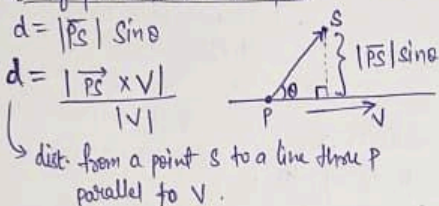 d = |P̅S̅| Sinθ
d = |P⃗S⃗ × V| / |V|
↳ dist. from a point S to a line thru P
parallel to V.
S
|P̅S̅| sinθ
θ
P
V